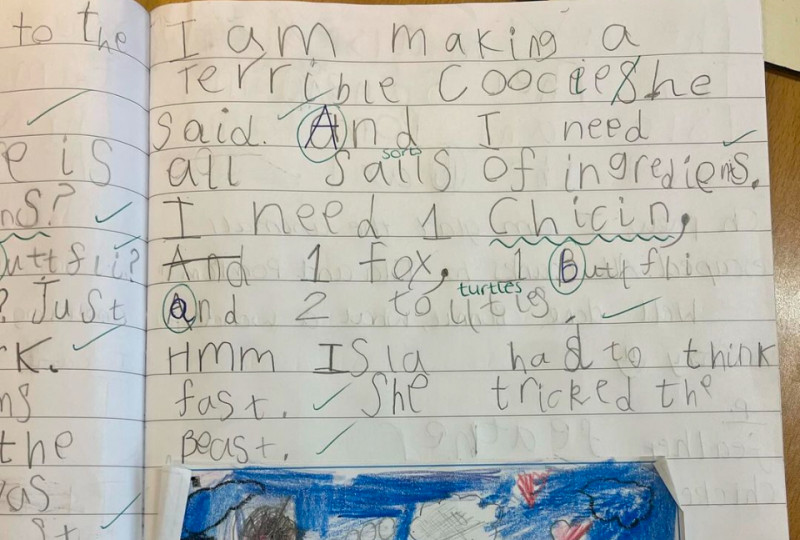 to the
e is
ns?
uttfli?
? Just
rk.
ns
the
as
st
I am making a
terrible Coocie She
said. And I need
sorts
all sails of ingredients.
I need 1 Chicin,
And 1 fox, 1 Buttfhi
turtles
and 2
Hmm Isla had to think
fast. She tricked the
Beast.